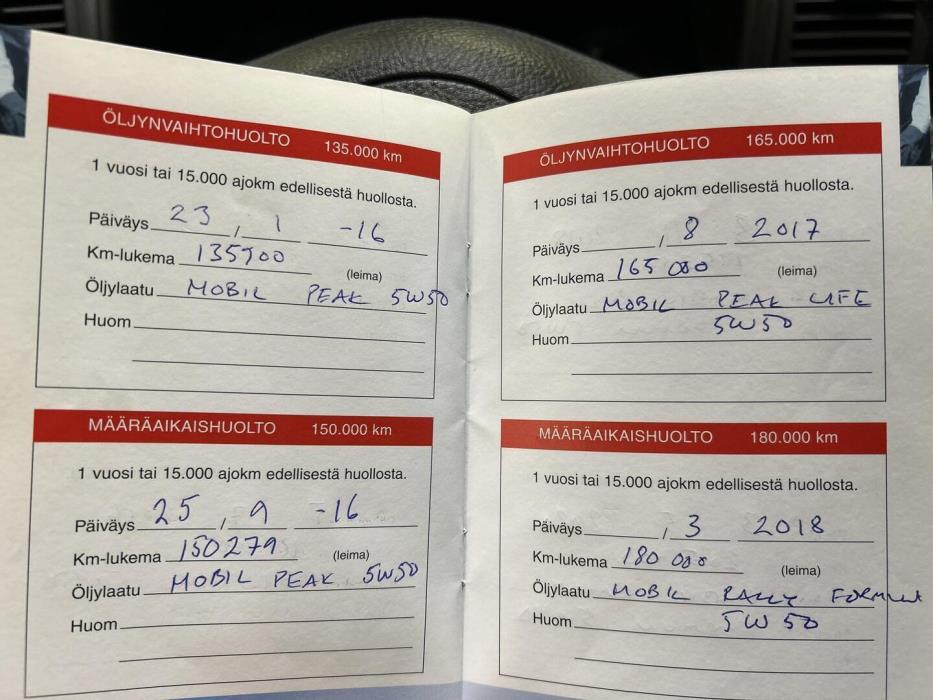 ÖLJYNVAIHTOHUOLTO 135.000 km
1 vuosi tai 15.000 ajokm edellisestä huollosta.
Päiväys 23 / 1 -16
Km-lukema 135900
(leima)
Öljylaatu MOBIL PEAK 5W50
Huom
MÄÄRÄAIKAISHUOLTO 150.000 km
1 vuosi tai 15.000 ajokm edellisestä huollosta.
Päiväys 25 / 9 -16
Km-lukema 150279
(leima)
Öljylaatu MOBIL PEAK 5W50
Huom
ÖLJYNVAIHTOHUOLTO 165.000 km
1 vuosi tai 15.000 ajokm edellisestä huollosta.
Päiväys / 8 2017
Km-lukema 165 000
(leima)
Öljylaatu MOBIL PEAK LIFE
5W50
Huom
MÄÄRÄAIKAISHUOLTO 180.000 km
1 vuosi tai 15.000 ajokm edellisestä huollosta.
Päiväys / 3 2018
Km-lukema 180 000
(leima)
Öljylaatu MOBIL RALLY FORMULA
Huom 5W50